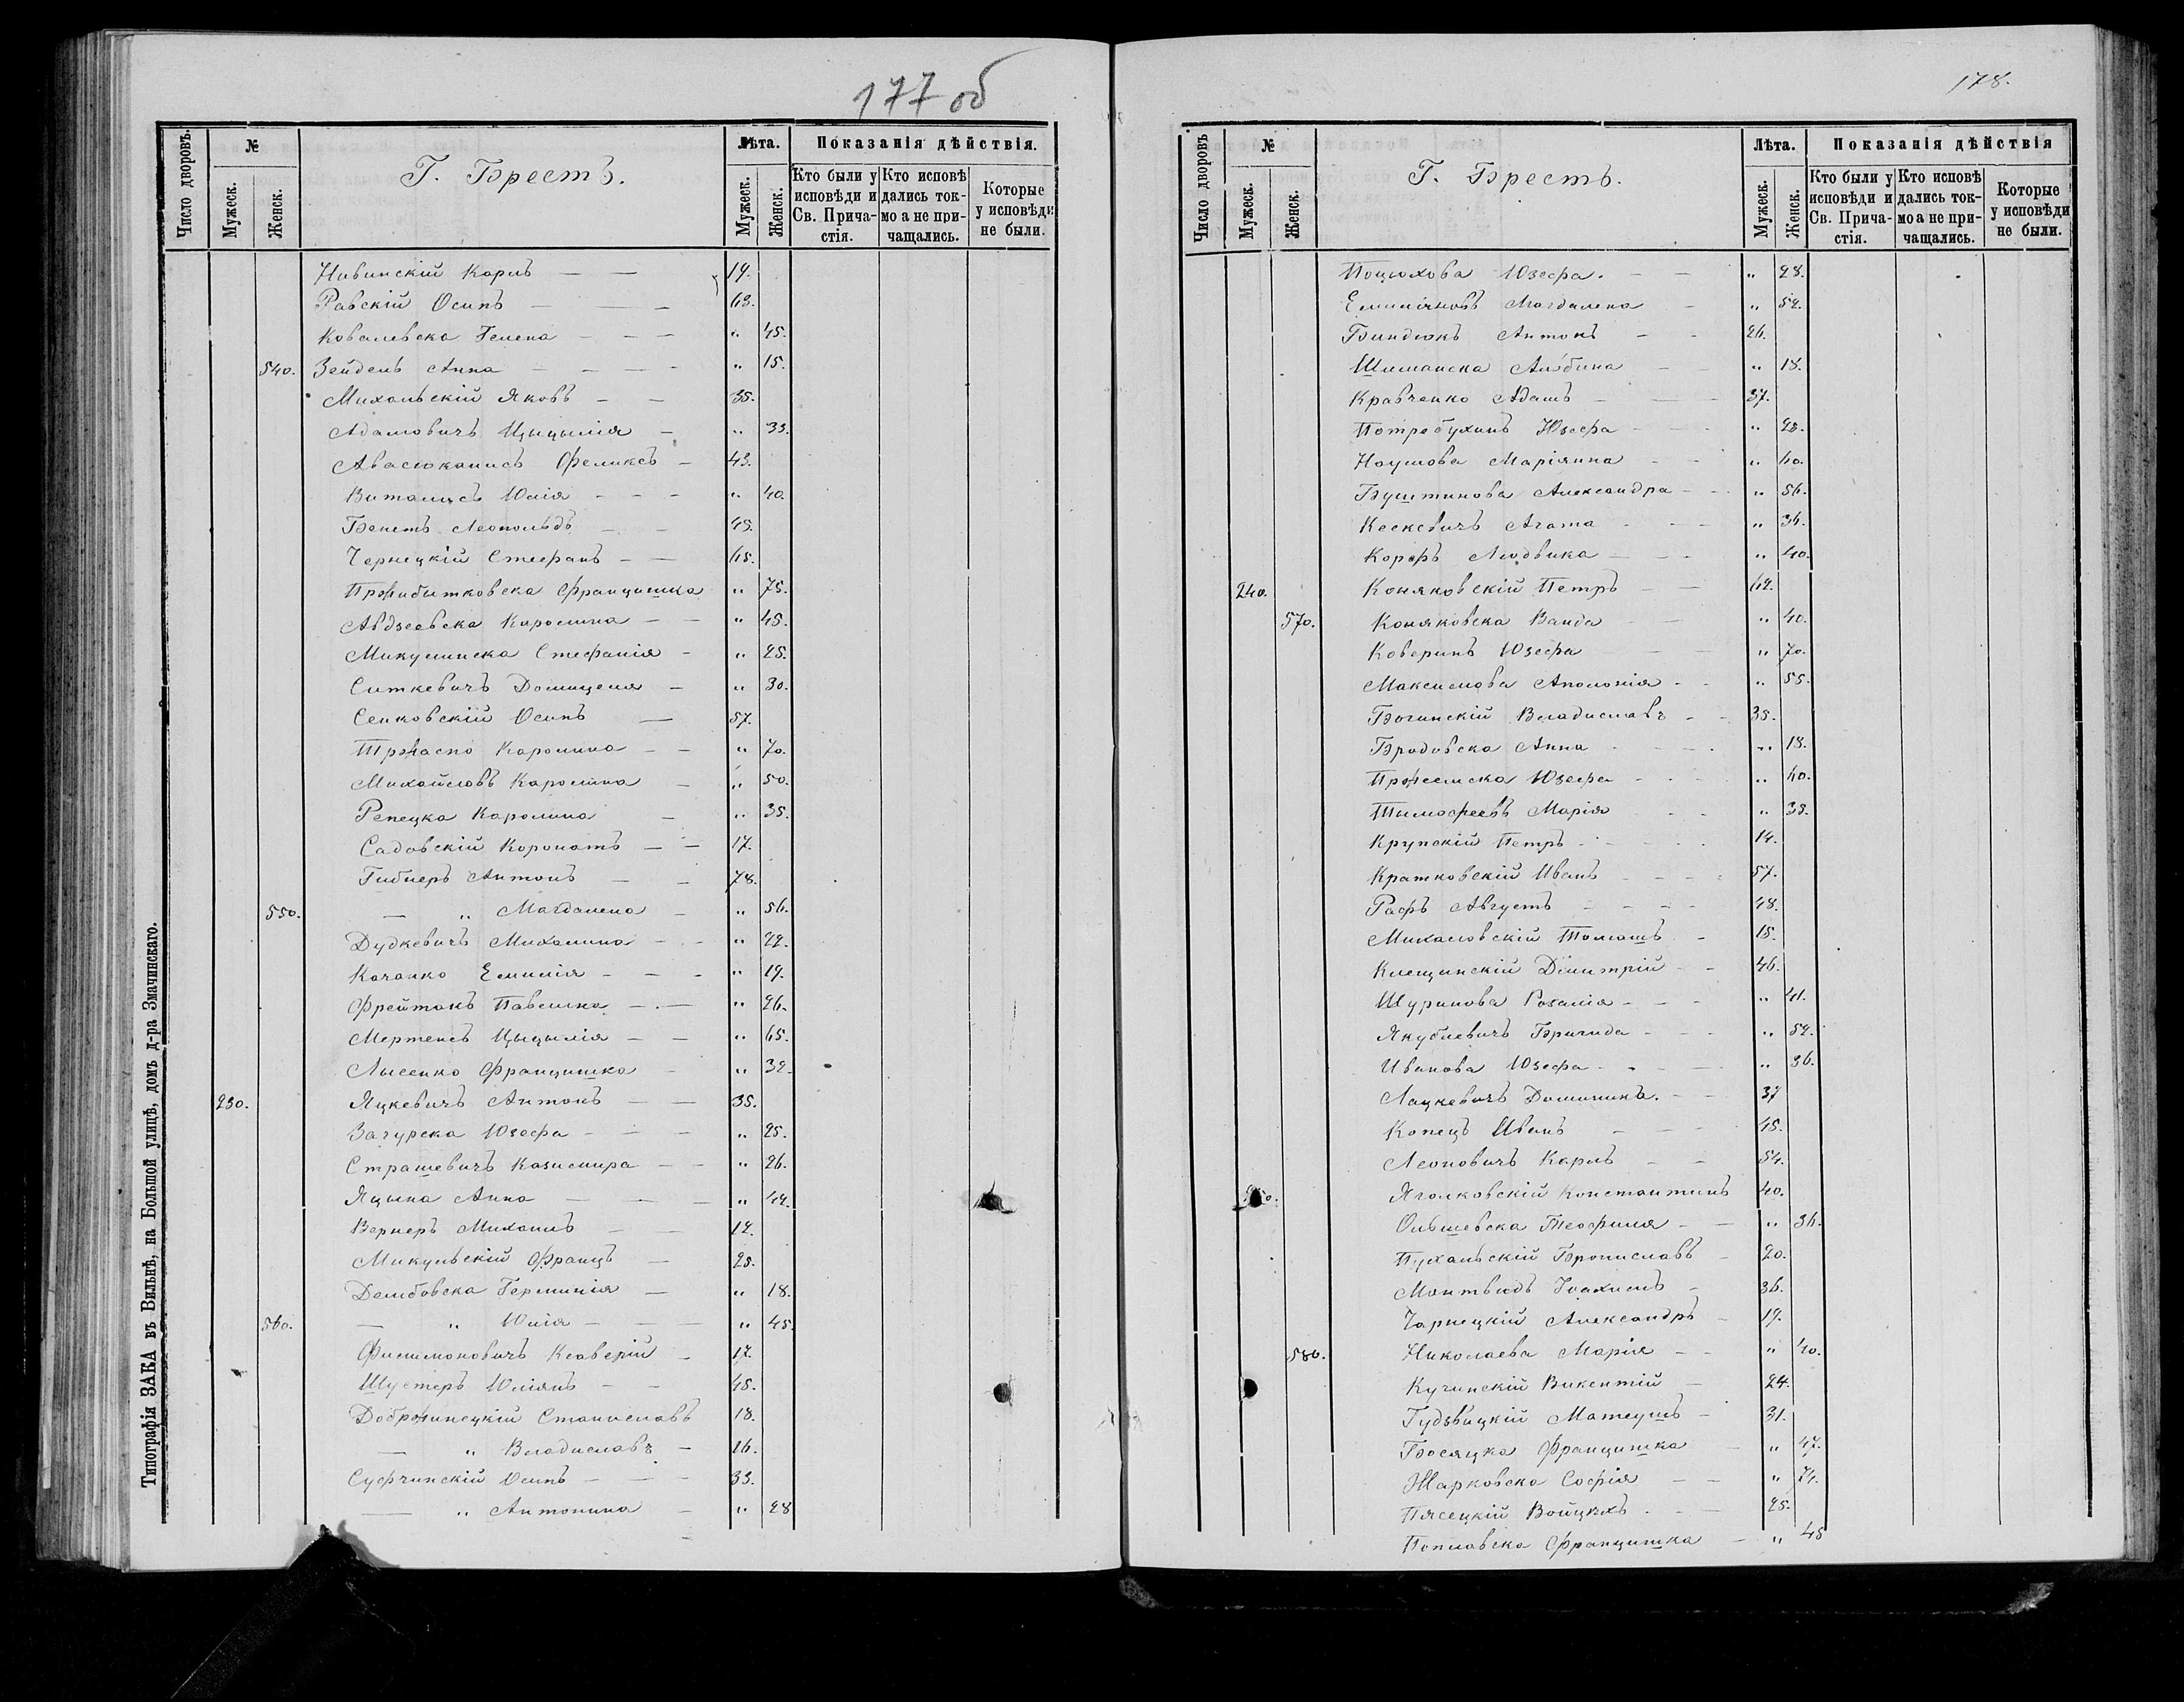 177 об
Число дворовъ.
№
Мужеск.
Женск.
Г. Брестъ.
Лѣта.
Мужеск.
Женск.
Показанія дѣйствія.
Кто были у исповѣди и Св. Прича-стія.
Кто исповѣ дались ток-мо а не при-чащались.
Которые у исповѣди не были.
Нивинскій Карлъ — — 19.
Равскій Осипъ — — 63.
Ковалевска Гелена — — — „ 45.
540. Зейдель Анна — — — — „ 15.
Михальскій Яковъ — — 35.
Адамовичъ Цыцылія — „ 33.
Авасюканисъ Феликсъ — 43.
Виталисъ Юлія — — — „ 40.
Бенетъ Леопольдъ — — 49.
Чернецкій Стефанъ — — 65.
Пржибытковска Францишка „ 75.
Авдзеевска Каролина — — „ 45.
Микулинска Стефанія — „ 25.
Ситкевичъ Домицеля — „ 30.
Сенковскій Осипъ — 57.
Тржасно Каролина — — „ 70.
Михайловъ Каролина — „ 50.
Репецка Каролина — „ 35.
Садовскій Коронатъ — — 17.
Гибнеръ Антонъ — — 78.
550. — „ Магдалена — „ 56.
Дудкевичъ Михалина — — „ 22.
Качанко Емилія — — — „ 19.
Фрейтакъ Павелина — — „ 26.
Мертенсъ Цыцылія — — „ 65.
Лысенко Францишка — „ 32.
230. Яцкевичъ Антонъ — — 35.
Загурска Юзефа — — — „ 25.
Страшевичъ Казимира — — „ 26.
Яцына Анна — — — „ 42.
Вернеръ Михаилъ — — 12.
Микульскій Францъ — 25.
Дембовска Герминія — „ 18.
560. — „ Юлія — — — „ 45.
Филимоновичъ Ксаверій — 17.
Шустеръ Юліянъ — — 45.
Добржинецкій Станиславъ 18.
— „ Владиславъ — 16.
Суфчинскій Осипъ — — — 33.
— „ Антонина — „ 28
Типографія ЗАКА въ Вильнѣ, на Большой улицѣ, домъ д-ра Змачинскаго.
178.
Число дворовъ
№
Мужеск.
Женск.
Г. Брестъ.
Лѣта.
Мужеск.
Женск.
Показанія дѣйствія
Кто были у исповѣди и Св. Прича-стія.
Кто исповѣ дались ток-мо а не при-чащались.
Которые у исповѣди не были.
Поцюхова Юзефа. — — „ 28.
Емиліановъ Магдалена — „ 52.
Биндюкъ Антонъ — — 26.
Шиманска Альбина — — „ 18.
Кравченко Адамъ — — 37.
Потребухинъ Юзефа — — „ 28.
Наумова Маріянна — — „ 60.
Буштинова Александра — — „ 56.
Кескевичъ Агата — — — „ 36.
Корфъ Людвика — — — „ 40.
240. Коняковскій Петръ — — 62.
570. Коняковска Ванда — — „ 40.
Коверинъ Юзефа — — — „ 70.
Максимова Аполонія — — „ 55.
Богинскій Владиславъ — — 35.
Бродовска Анна — — — „ 18.
Пржеемска Юзефа — — — „ 60.
Тымофеевъ Марія — — — „ 38.
Крупскій Петръ — — — 14.
Кратковскій Иванъ — — — 57.
Рафъ Августъ — — — — 48.
Михаловскій Томашъ — 15.
Клещинскій Димитрій — — 46.
Шуринова Розалія — — — „ 41.
Якублевичъ Бригида — — — „ 52.
Иванова Юзефа — — — „ 36.
Лацкевичъ Доминикъ. — — 37
Конецъ Иванъ — — — 45.
Леоновичъ Карлъ — — 54.
Яголковскій Константинъ 40.
Ольшевска Теофиля — — „ 36.
Пухальскій Брониславъ — 20.
Монтвидъ Іоахимъ — 36.
Чарнецкій Александръ — 19.
580. Николаева Марія — — „ 40.
Кучинскій Викентій — 24.
Гудзвицкій Матеушъ — 31.
Босяцка Францишка — „ 47.
Жарковска Софія — — „ 71.
Пясецкій Войцехъ — — 25.
Поплавска Францишка — „ 45